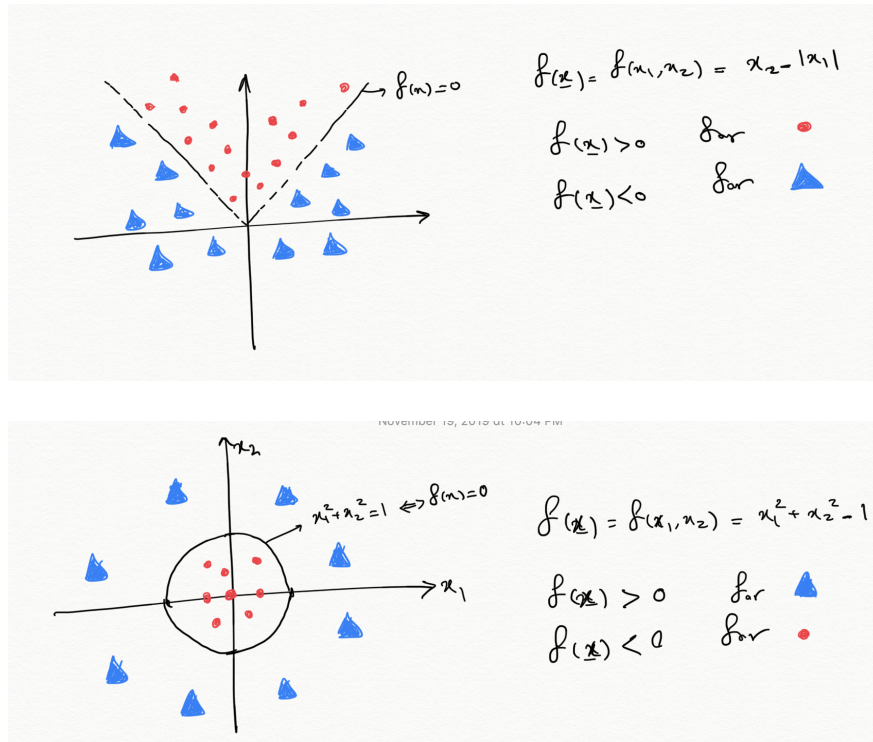 f(x)=0
f(x̲) = f(x₁,x₂) = x₂-|x₁|
f(x̲)>0 for
f(x̲)<0 for
November 19, 2019 at 10:04 PM
x₂
x₁²+x₂²=1 ⇔ f(x)=0
f(x̲) = f(x₁,x₂) = x₁²+x₂²-1
x₁
f(x̲) > 0 for
f(x̲) < 0 for